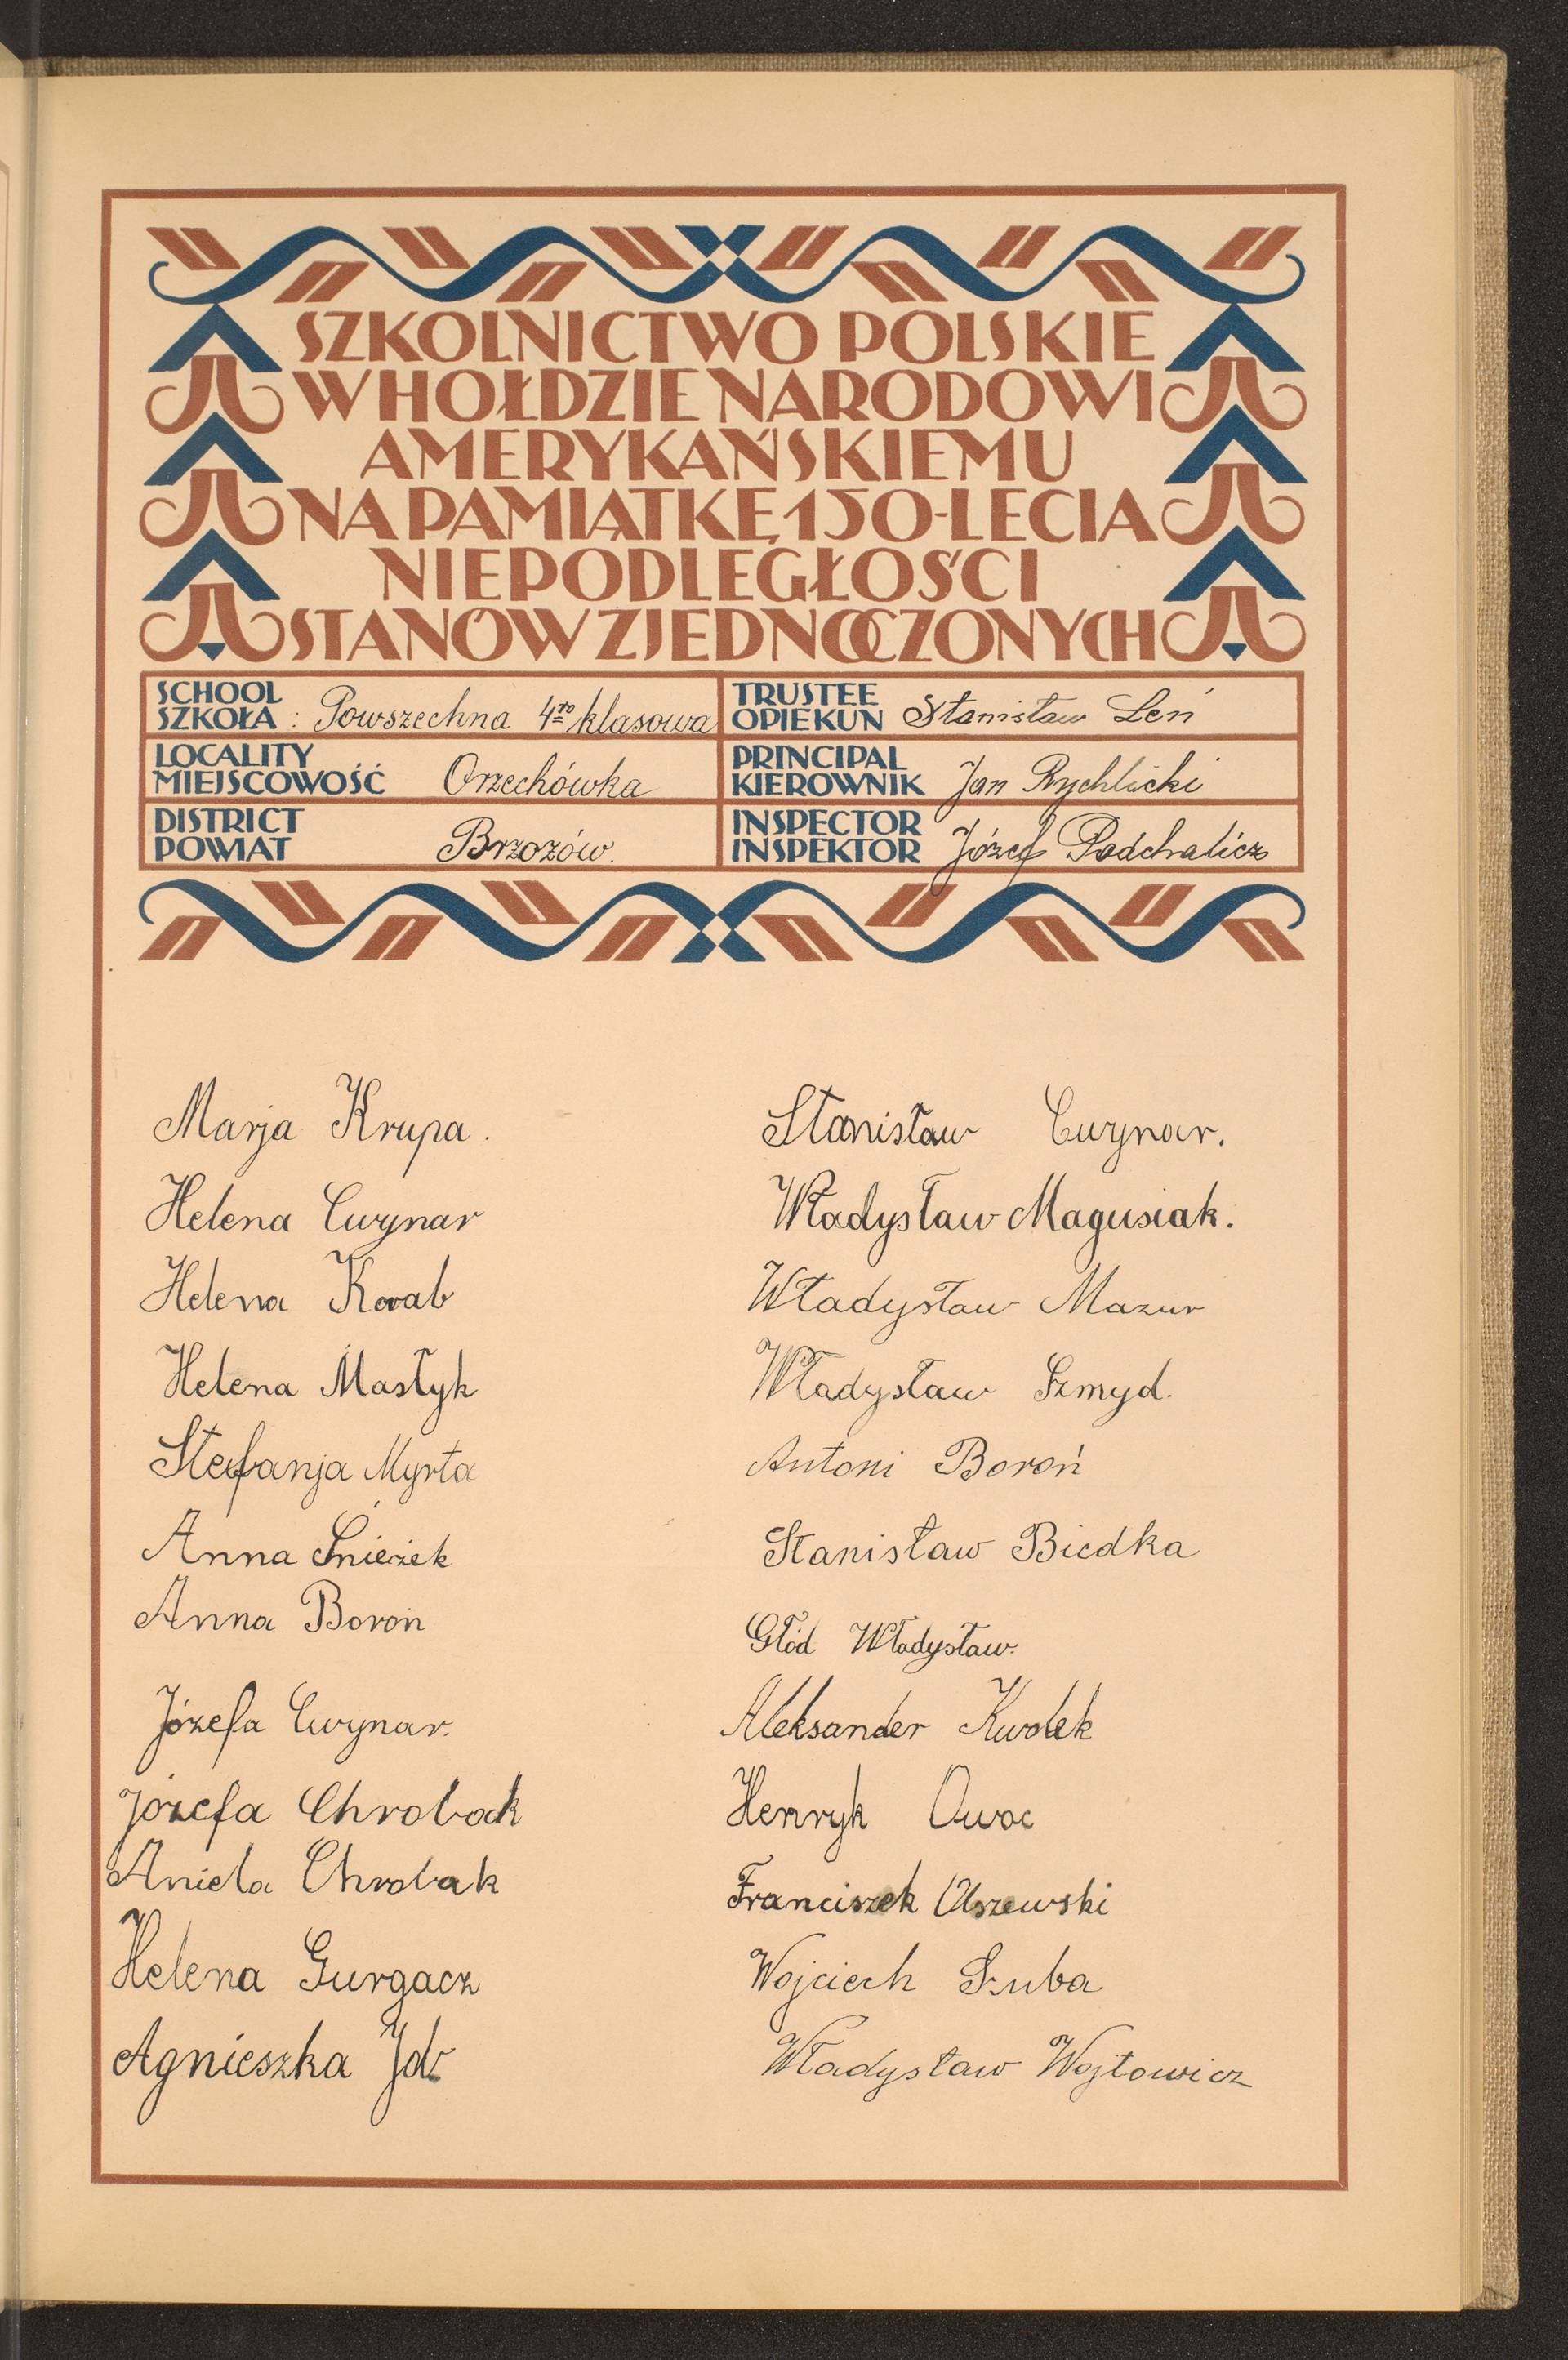 SZKOLNICTWO POLSKIE
W HOŁDZIE NARODOWI
AMERYKAŃSKIEMU
NA PAMIĄTKĘ 150-LECIA
NIEPODLEGŁOŚCI
STANÓW ZJEDNOCZONYCH
SCHOOL
SZKOŁA : Powszechna 4ro klasowa
TRUSTEE
OPIEKUN Stanisław Leń
LOCALITY
MIEJSCOWOŚĆ Orzechówka
PRINCIPAL
KIEROWNIK Jan Rychlicki
DISTRICT
POWIAT Brzozów.
INSPECTOR
INSPEKTOR Józef Podchalicz
Marja Krupa.
Helena Cwynar
Helena
Helena Masłyk
Stefanja Myrta
Anna Śnieżek
Anna Boroń
Józefa Cwynar.
Józefa Chrobak
Aniela Chrobak
Helena Gurgacz
Agnieszka
Stanisław Cwynar.
Władysław Magusiak.
Władysław Mazur
Władysław Szmyd.
Antoni Boroń
Stanisław Biedka
Głód Władysław.
Aleksander Kwolek
Henryk Owoc
Franciszek Olszewski
Wojciech Szuba
Władysław Wojtowicz